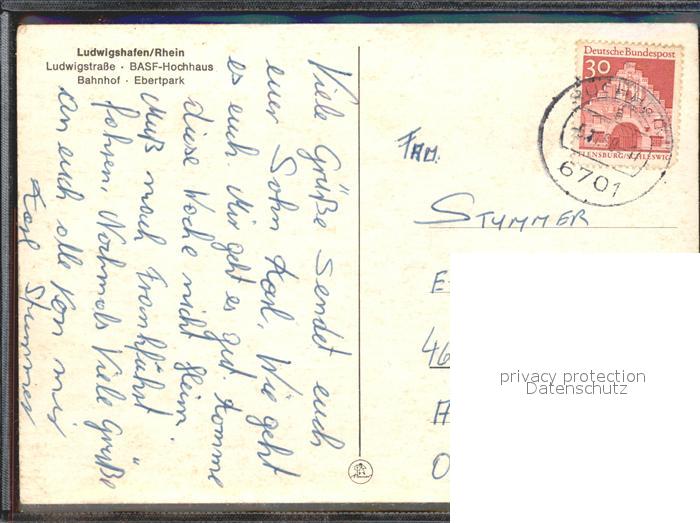 Ludwigshafen/Rhein
Ludwigstraße · BASF-Hochhaus
Bahnhof · Ebertpark
Viele Grüße sendet euch
euer Sohn Karl, Wie geht
es euch. Mir geht es gut. Komme
diese Woche nicht heim.
Muß nach Frankfurt
fahren. Nochmals Viele Grüße
an euch alle von mir
Karl Stummer
Deutsche Bundespost
30
FLENSBURG/SCHLESWIG
6701
FAM.
STUMMER
E
46
A
O
privacy protection
Datenschutz